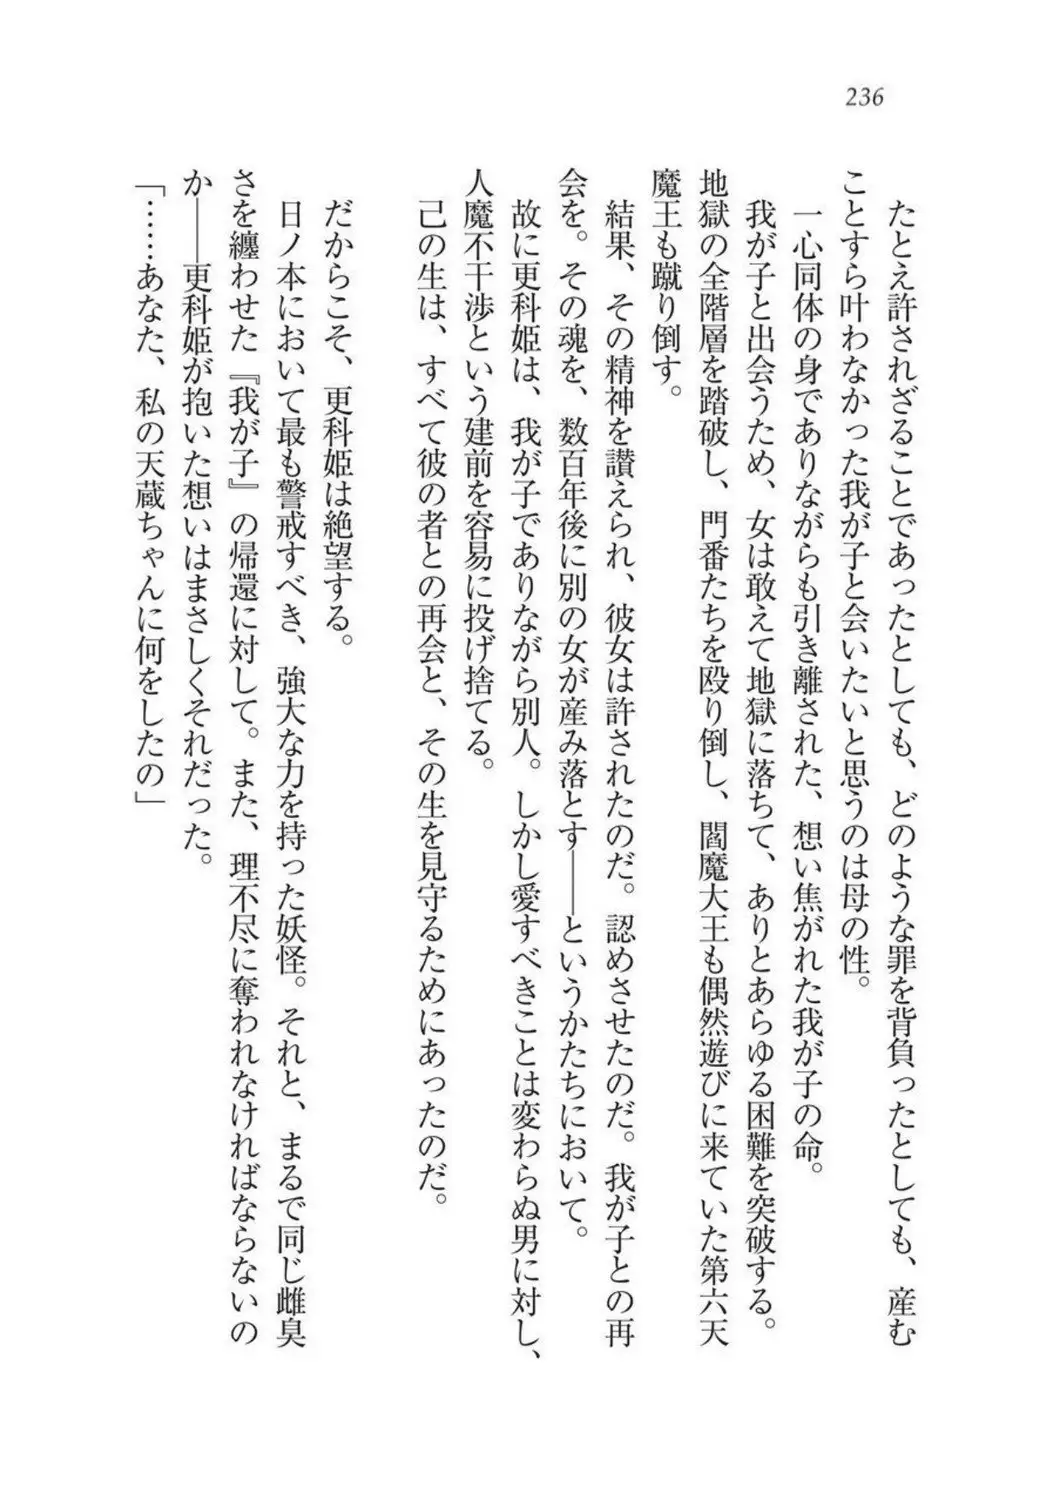 236
　たとえ許されざることであったとしても、どのような罪を背負ったとしても、産む
ことすら叶わなかった我が子と会いたいと思うのは母の性。
　一心同体の身でありながらも引き離された、想い焦がれた我が子の命。
　我が子と出会うため、女は敢えて地獄に落ちて、ありとあらゆる困難を突破する。
地獄の全階層を踏破し、門番たちを殴り倒し、閻魔大王も偶然遊びに来ていた第六天
魔王も蹴り倒す。
　結果、その精神を讃えられ、彼女は許されたのだ。認めさせたのだ。我が子との再
会を。その魂を、数百年後に別の女が産み落とす――というかたちにおいて。
　故に更科姫は、我が子でありながら別人。しかし愛すべきことは変わらぬ男に対し、
人魔不干渉という建前を容易に投げ捨てる。
　己の生は、すべて彼の者との再会と、その生を見守るためにあったのだ。
　だからこそ、更科姫は絶望する。
　日ノ本において最も警戒すべき、強大な力を持った妖怪。それと、まるで同じ雌臭
さを纏わせた『我が子』の帰還に対して。また、理不尽に奪われなければならないの
か――更科姫が抱いた想いはまさしくそれだった。
「……あなた、私の天蔵ちゃんに何をしたの」